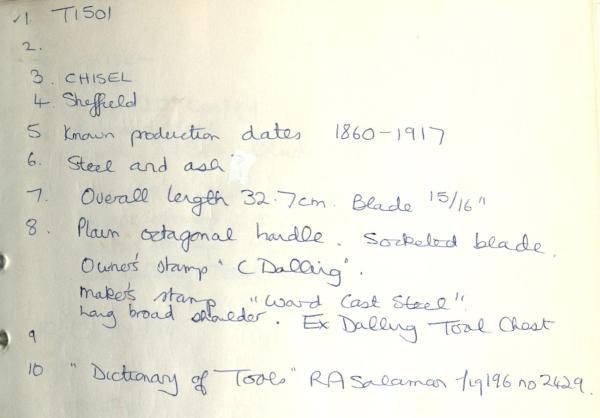 ✓1 T1501
2.
3. CHISEL
4. Sheffield
5 Known production dates 1860-1917
6. Steel and ash
7. Overall length 32.7cm. Blade 15/16"
8. Plain octagonal handle. Socketed blade.
Owner's stamp "C Dalling".
Maker's stamp "Ward Cast Steel".
Long broad shoulder. Ex Dalling Tool Chest
9
10 "Dictionary of Tools" RA Salaman no 2429.